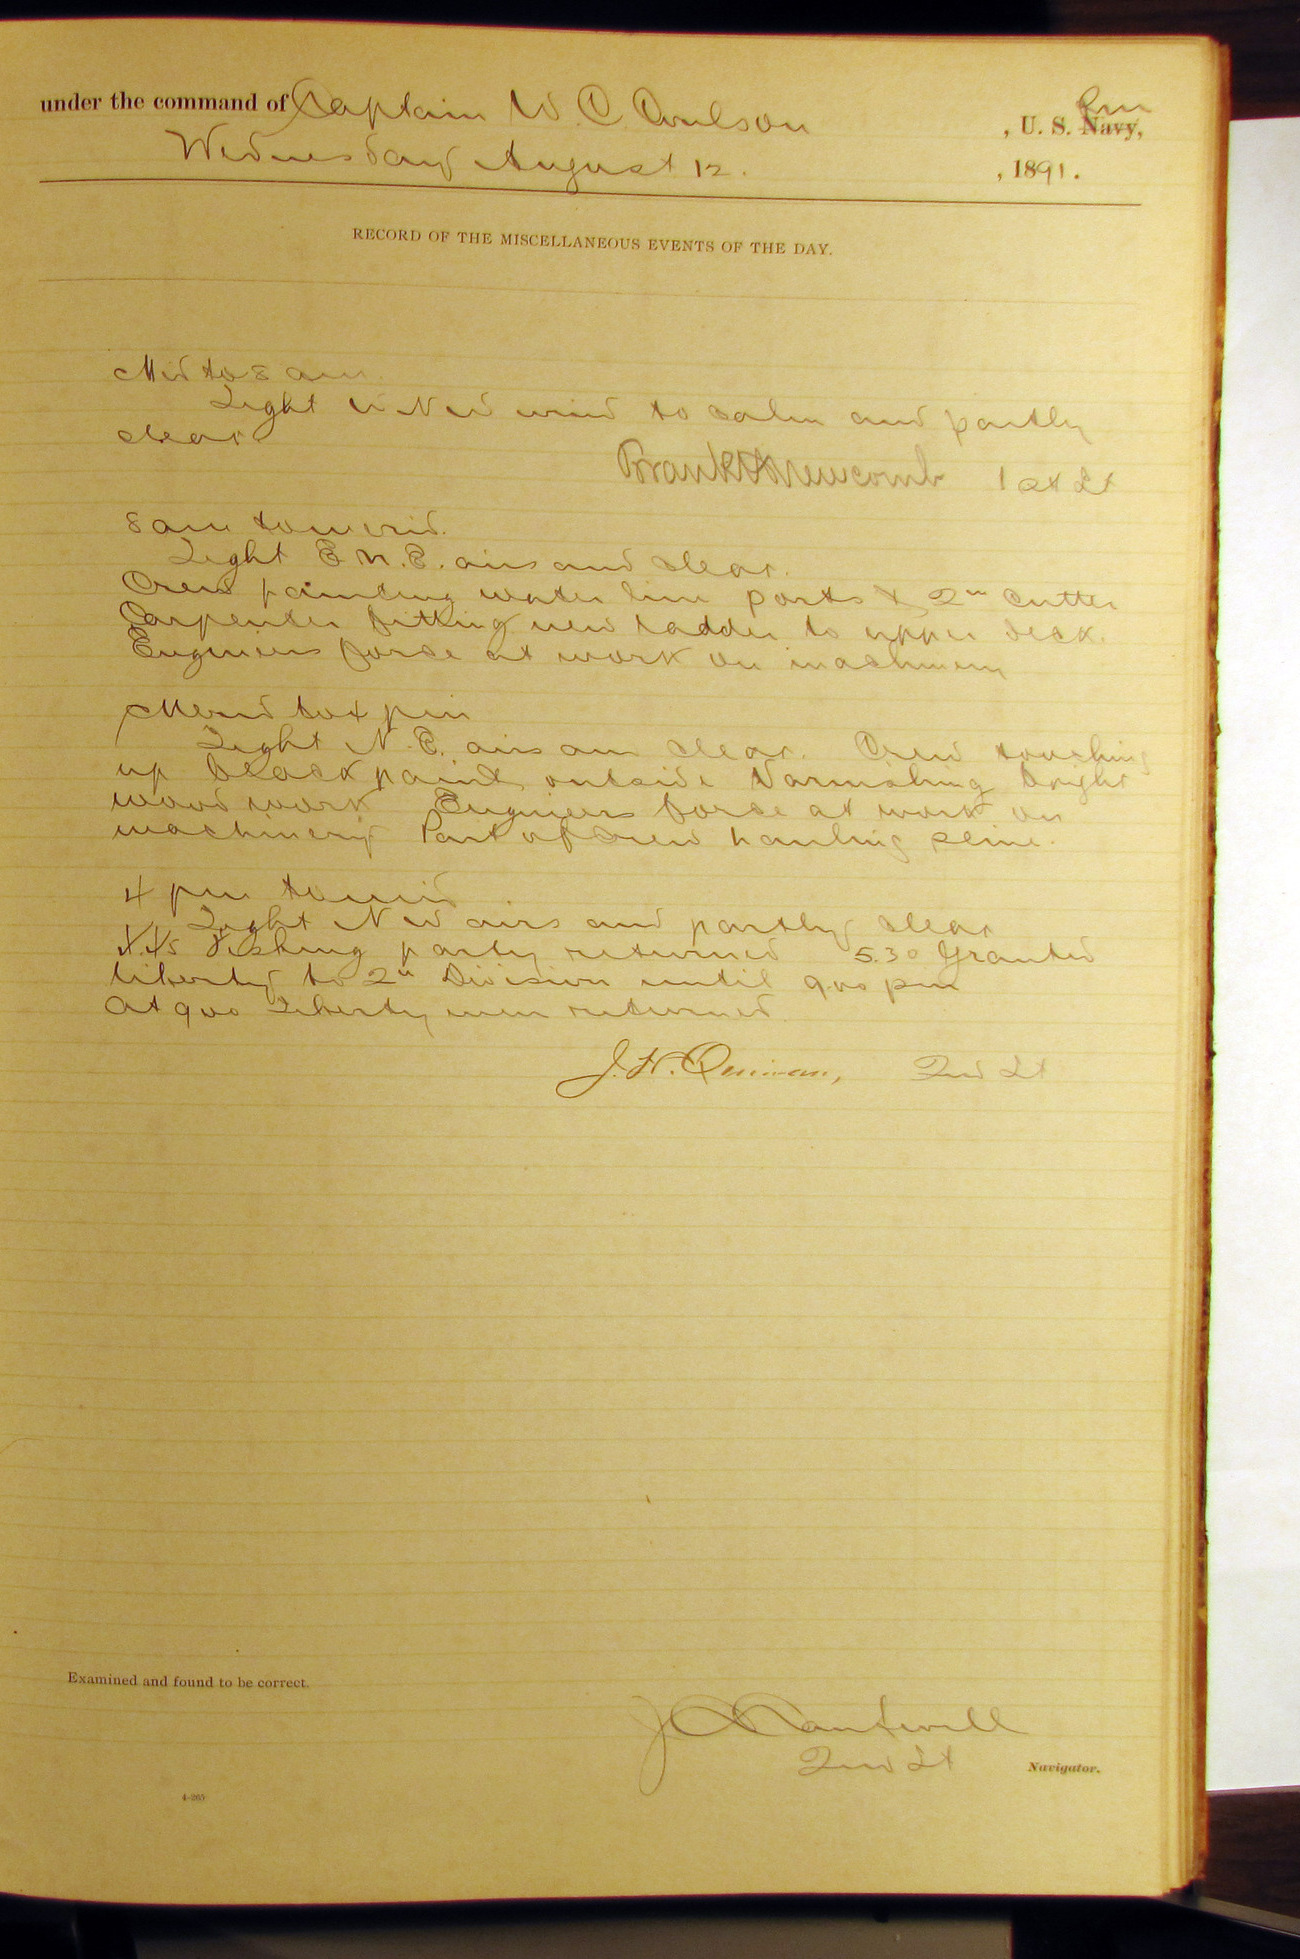 under the command of Captain W. C. Coulson, U. S. Navy, Rm
Wednesday August 12. , 1891.
RECORD OF THE MISCELLANEOUS EVENTS OF THE DAY.
Mid to 8 am
Light W N W wind to calm and partly
clear
Frank H Newcomb 1st Lt
8 am to merid.
Light E N. E. airs and clear.
Crew painting water line ports & 2" Cutter
Carpenter fitting new ladder to upper deck.
Engineers force at work on machinery
Merid to 4 pm
Light N. E. airs and clear. Crew touching
up black paint outside Varnishing bright
wood work Engineers force at work on
machinery Part of crew hauling seine.
4 pm to mid
Light N W airs and partly clear
4.45 Fishing party returned 5.30 Granted
liberty to 2" Division until 9.00 pm
At 9.00 Liberty men returned
J. H. Quinan, 2nd Lt
Examined and found to be correct.
J C Cantwell
2nd Lt Navigator.
4-265